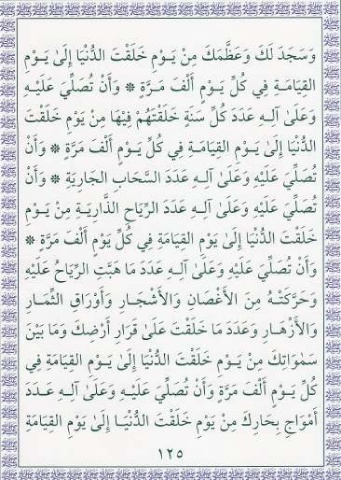 وَسَجَدَ لَكَ وَعَظَّمَكَ مِنْ يَوْمِ خَلَقْتَ الدُّنْيَا إِلَىٰ يَوْمِ
القِيَامَةِ فِي كُلِّ يَوْمٍ أَلْفَ مَرَّةٍ * وَأَنْ تُصَلِّيَ عَلَيْهِ
وَعَلَىٰ آلِهِ عَدَدَ كُلِّ سَنَةٍ خَلَقْتَهُمْ فِيهَا مِنْ يَوْمِ خَلَقْتَ
الدُّنْيَا إِلَىٰ يَوْمِ القِيَامَةِ فِي كُلِّ يَوْمٍ أَلْفَ مَرَّةٍ * وَأَنْ
تُصَلِّيَ عَلَيْهِ وَعَلَىٰ آلِهِ عَدَدَ السَّحَابِ الجَارِيَةِ * وَأَنْ
تُصَلِّيَ عَلَيْهِ وَعَلَىٰ آلِهِ عَدَدَ الرِّيَاحِ الذَّارِيَةِ مِنْ يَوْمِ
خَلَقْتَ الدُّنْيَا إِلَىٰ يَوْمِ القِيَامَةِ فِي كُلِّ يَوْمٍ أَلْفَ مَرَّةٍ *
وَأَنْ تُصَلِّيَ عَلَيْهِ وَعَلَىٰ آلِهِ عَدَدَ مَا هَبَّتِ الرِّيَاحُ عَلَيْهِ
وَحَرَّكَتْهُ مِنَ الأَغْصَانِ وَالأَشْجَارِ وَأَوْرَاقِ الثِّمَارِ
وَالأَزْهَارِ وَعَدَدَ مَا خَلَقْتَ عَلَىٰ قَرَارِ أَرْضِكَ وَمَا بَيْنَ
سَمٰوَاتِكَ مِنْ يَوْمِ خَلَقْتَ الدُّنْيَا إِلَىٰ يَوْمِ القِيَامَةِ فِي
كُلِّ يَوْمٍ أَلْفَ مَرَّةٍ وَأَنْ تُصَلِّيَ عَلَيْهِ وَعَلَىٰ آلِهِ عَدَدَ
أَمْوَاجِ بِحَارِكَ مِنْ يَوْمِ خَلَقْتَ الدُّنْيَا إِلَىٰ يَوْمِ القِيَامَةِ
١٢٥